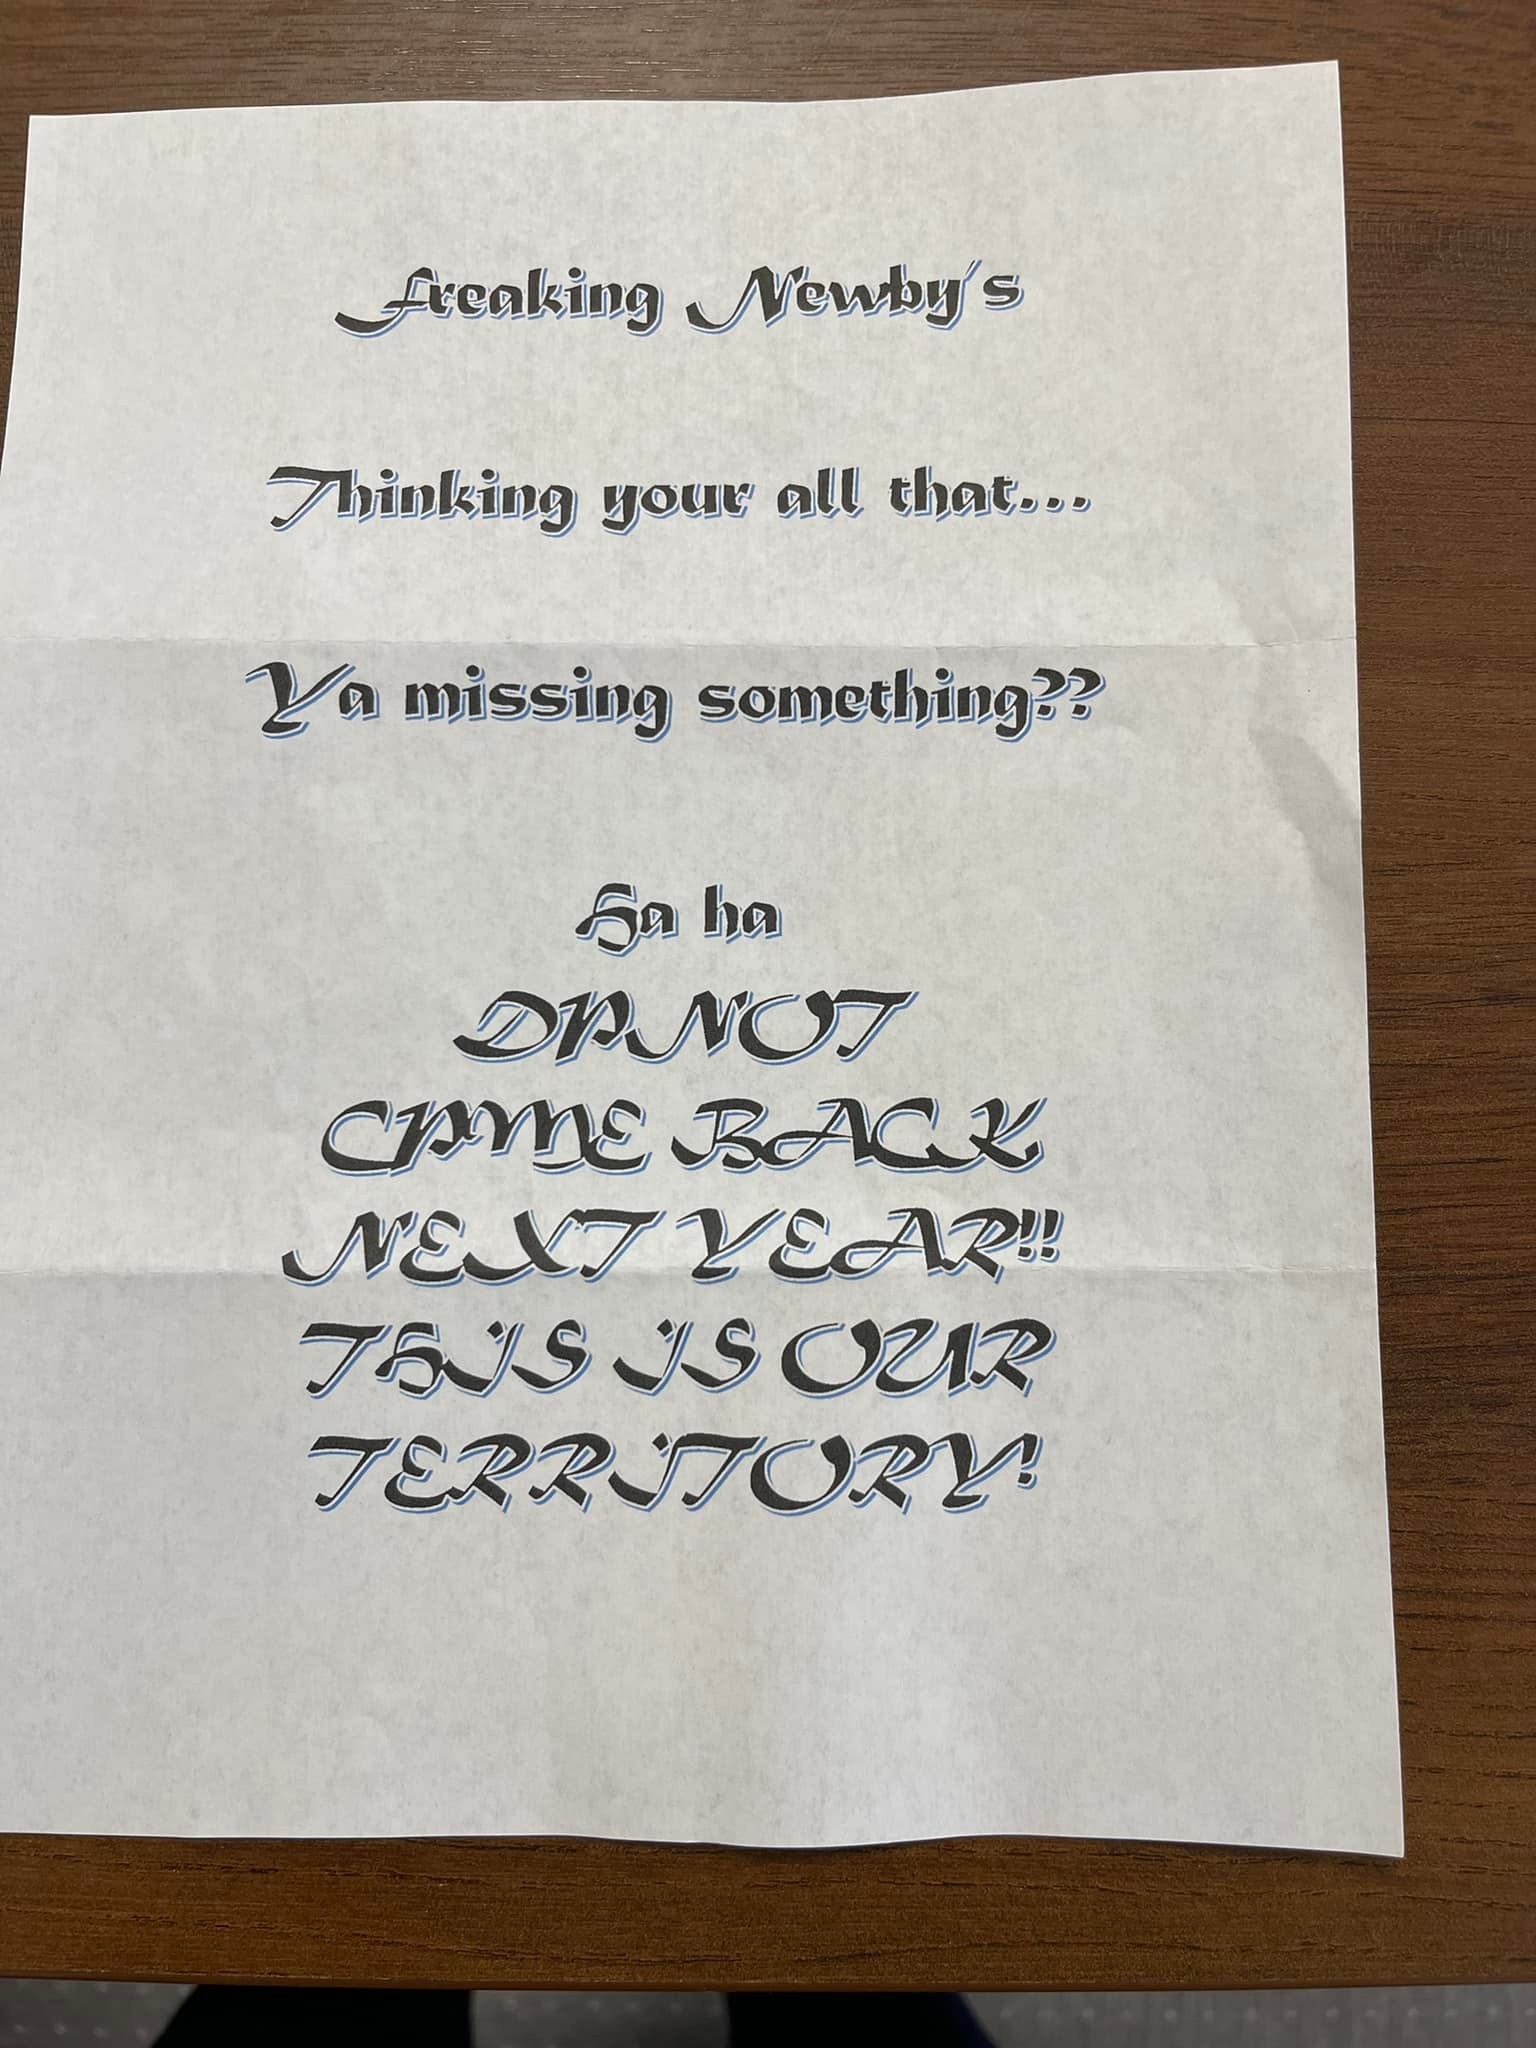 Freaking Newby's
Thinking your all that...
Ya missing something??
Ha ha
DP NOT
CPME BACK
NEXT YEAR!!
THIS IS OUR
TERRITORY!